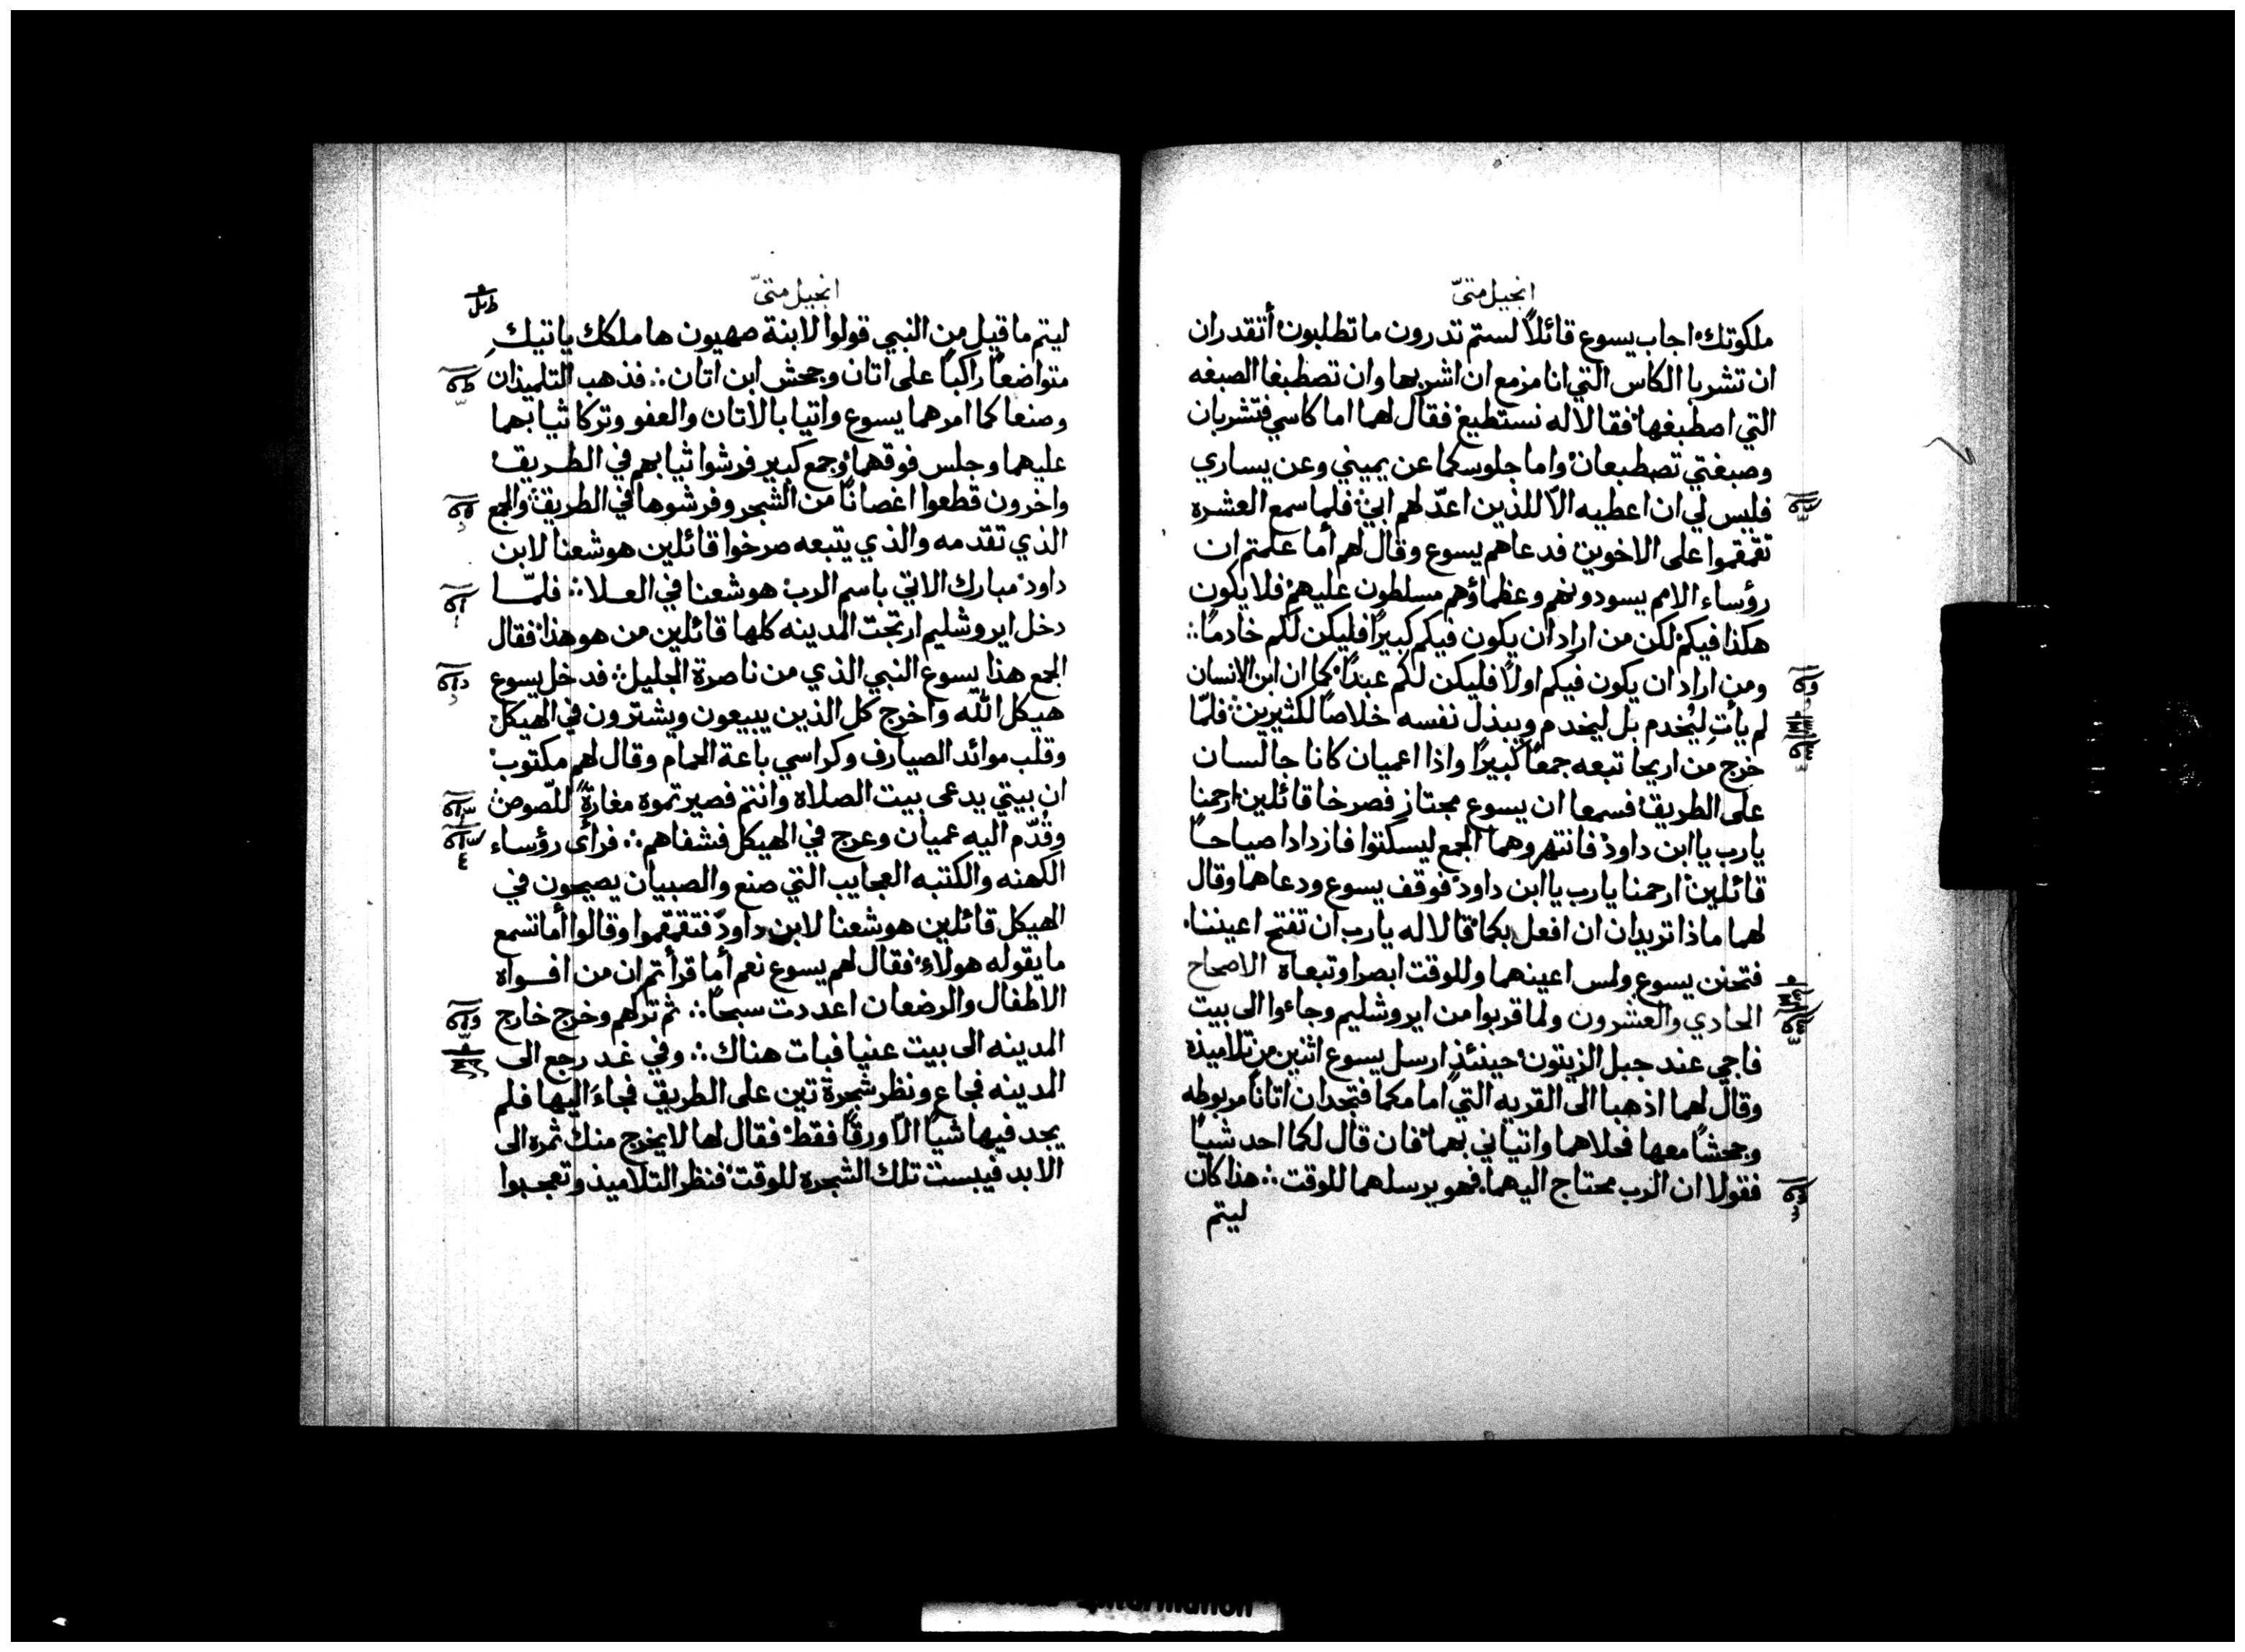 انجيل متىّ
ملكوتك. اجاب يسوع قائلاً لستم تدرون ما تطلبون. أتقدران
ان تشربا الكاس التي انا مزمع ان اشربها وان تصطبغا الصبغه
التي اصطبغها. فقالا له نستطيع. فقال لهما اما كاسي فتشربان
وصبغتي تصطبغان. واما جلوسكما عن يميني وعن يساري
فليس لي ان اعطيه الاّ للذين اعدّ لهم ابي. فلما سمع العشره
تقمقموا على الاخوين. فدعاهم يسوع وقال لهم أما علمتم ان
رؤساء الامم يسودونهم وعظماؤهم مسلطون عليهم. فلا يكون
هكذا فيكم. لكن من اراد ان يكون فيكم كبيرًا فليكن لكم خادمًا :.
ومن اراد ان يكون فيكم اولاً فليكن لكم عبدًا. كما ان ابن الانسان
لم يأتِ ليُخدم بل ليخدم ويبذل نفسه خلاصًا لكثيرين. فلمّا
خرج من اريحا تبعه جمعًا كبيرًا واذا اعميان كانا جالسان
على الطريق. فسمعا ان يسوع مجتاز فصرخا قائلين ارحمنا
يارب يا ابن داود. فانتهروهما الجمع ليسكتوا فازدادا صياحًا
قائلين. ارحمنا يارب يا ابن داود. فوقف يسوع ودعاهما وقال
لهما ماذا تريدان ان افعل بكما. قالا له يارب ان تفتح اعيننا.
فتحنن يسوع ولمس اعينهما وللوقت ابصرا وتبعاه الاصحاح
الحادي والعشرون ولما قربوا من ايروشليم وجاءوا الى بيت
فاجي عند جبل الزيتون. حينئذٍ ارسل يسوع اثنين من تلاميذه
وقال لهما اذهبا الى القريه التي امامكما فتجدان اتانًا مربوطه
وجحشًا معها فحلاهما واتياني بهما. فان قال لكما احد شيًا
فقولا ان الرب محتاج اليهما. فهو يرسلهما للوقت :. هذا كان
ليتم
انجيل متىّ
ليتم ما قيل من النبي قولوا لابنة صهيون ها ملكك ياتيك
متواضعًا راكبًا على اتان وجحش ابن اتان :. فذهب التلميذان
وصنعا كما امرهما يسوع واتيا بالاتان والعفو وتركا ثيابهما
عليهما وجلس فوقهما. وجمع كبير فرشوا ثيابهم في الطريق.
واخرون قطعوا اغصانًا من الشجر وفرشوها في الطريق. والجمع
الذي تقدمه والذي يتبعه صرخوا قائلين هوشعنا لابن
داود. مبارك الاتي باسم الرب. هوشعنا في العلا :. فلمّا
دخل ايروشليم ارتجت المدينه كلها قائلين من هو هذا. فقال
الجمع هذا يسوع النبي الذي من ناصرة الجليل. فدخل يسوع
هيكل الله واخرج كل الذين يبيعون ويشترون في الهيكل
وقلب موائد الصيارف وكراسي باعة الحمام وقال لهم مكتوب.
ان بيتي يدعى بيت الصلاه وانتم فصيرتموه مغارةً للصوص.
وقُدّم اليه عميان وعرج في الهيكل فشفاهم :. فرأى رؤساء
الكهنه والكتبه العجايب التي صنع والصبيان يصيحون في
الهيكل قائلين هوشعنا لابن داود. فتقمقموا وقالوا أما تسمع
ما يقوله هولاءِ. فقال لهم يسوع نعم أما قرأتم ان من افواه
الاطفال والرضعان اعددت سبحًا :. ثم تركهم وخرج خارج
المدينه الى بيت عنيا فبات هناك :. وفي غد رجع الى
المدينه فجاع ونظر شجرة تين على الطريق فجاءَ اليها فلم
يجد فيها شيًا الاّ ورقًا فقط. فقال لها لا يخرج منك ثمره الى
الابد فيبست تلك الشجره للوقت. فنظر التلاميذ وتعجبوا